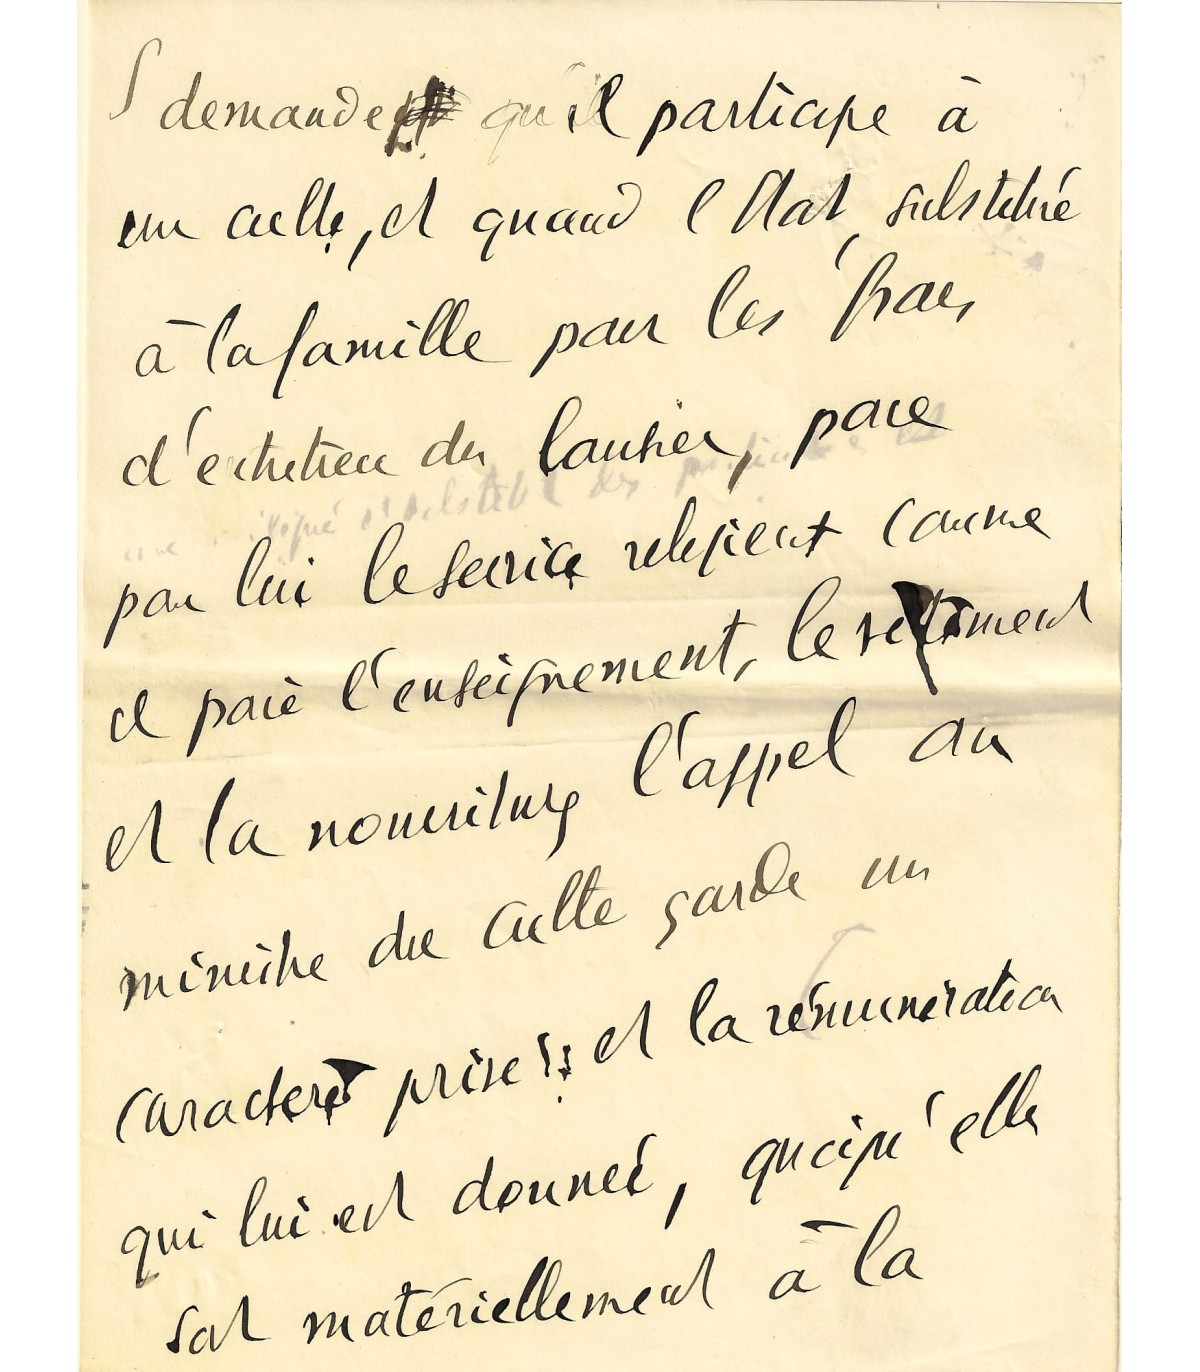 demande qu'il participe à
un culte, et quand l'Etat, substitué
à la famille pour les frais
d'entretien du boursier, paie
par lui le service religieux comme
il paie l'enseignement, le vêtement
et la nourriture, l'appel au
ministre du culte garde un
caractère privé ; et la rémunération
qui lui est donnée, quoiqu'elle
soit matériellement à la